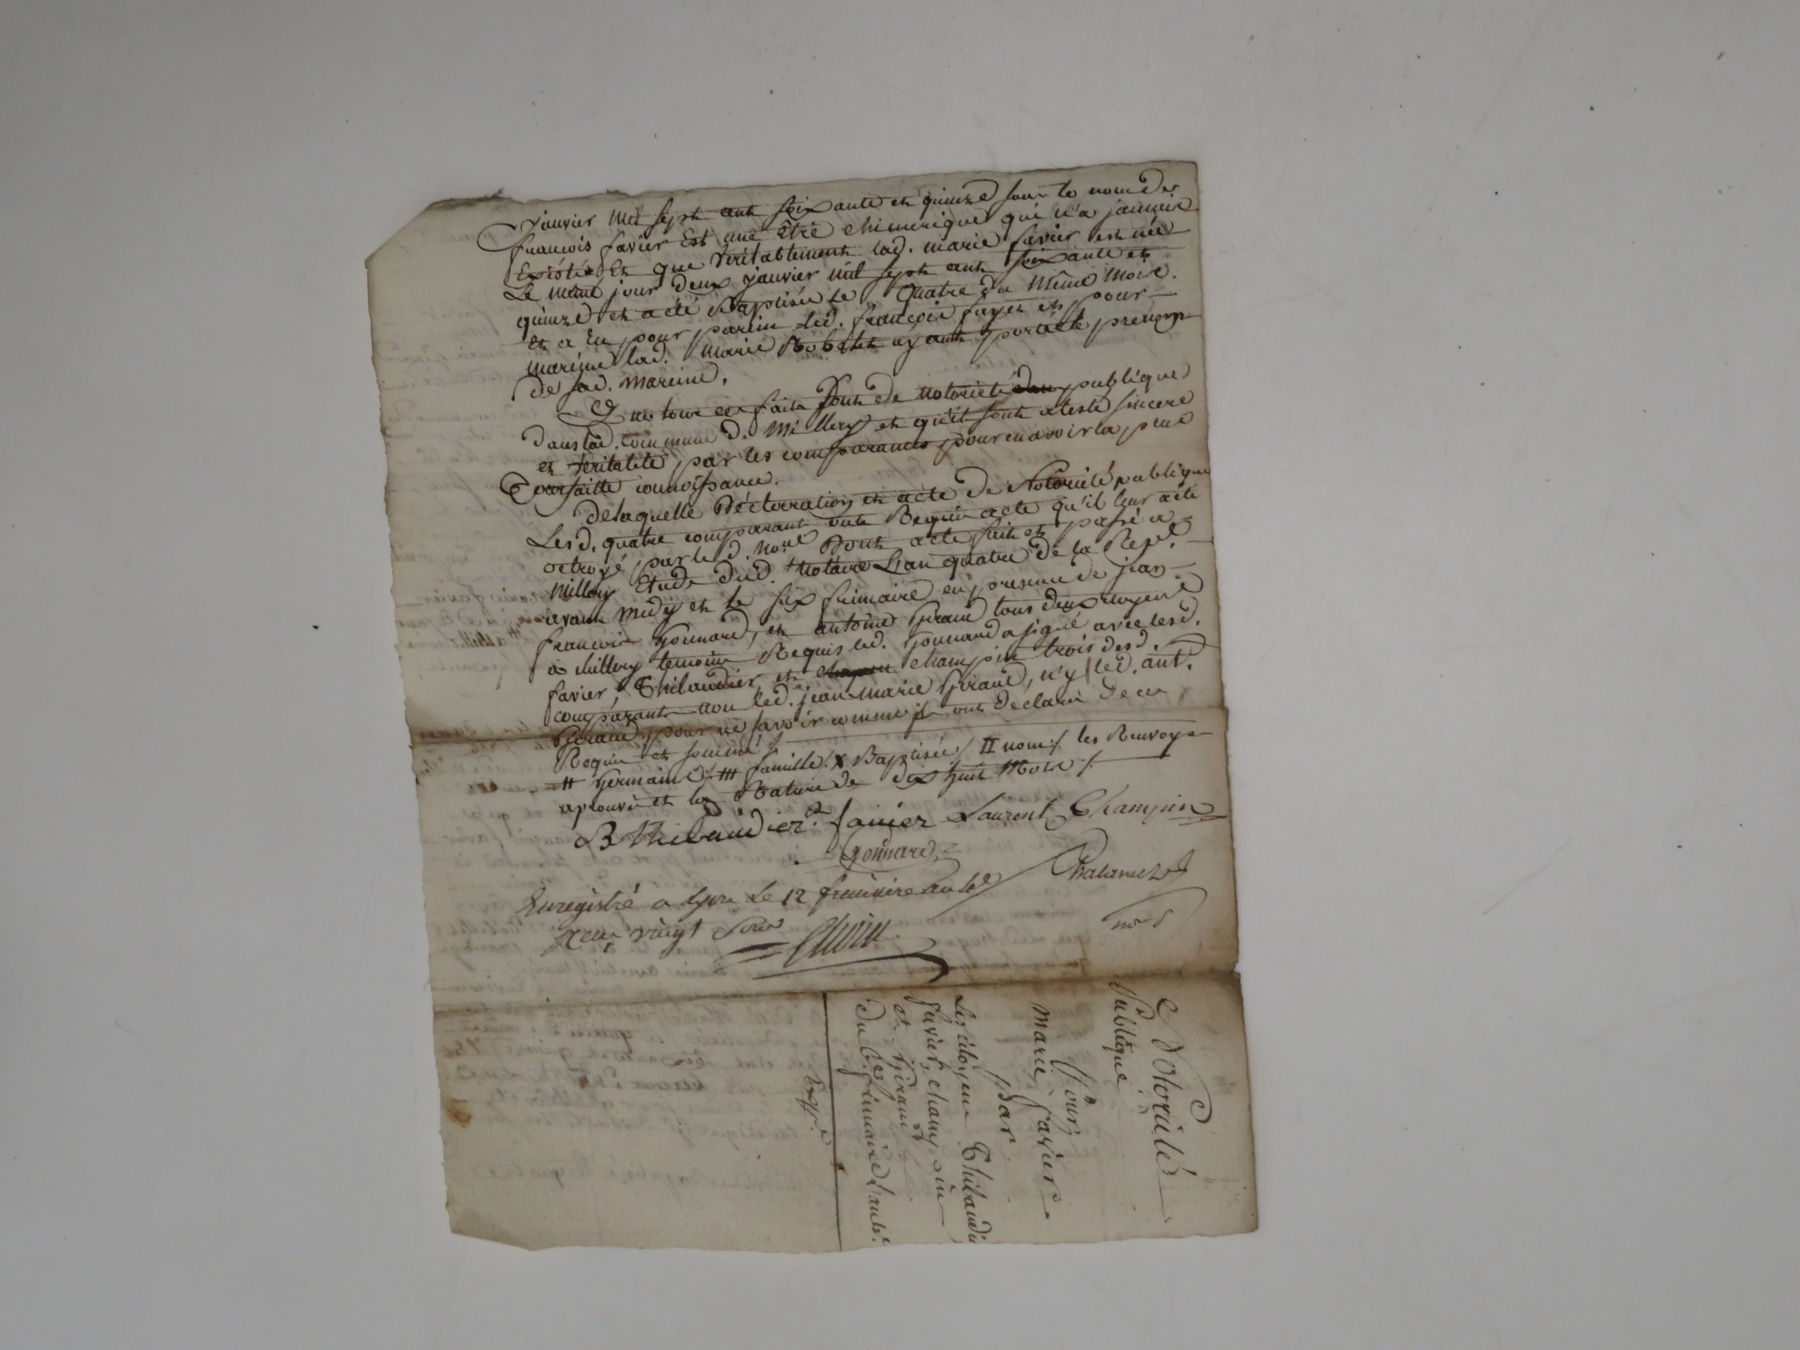 janvier mil sept cent soixante et quinze sous le nom de
francois favier Est une être chimerique qui n'a jamais
Existé Et que veritablement lad. marie favier est née
Le même jour deux janvier mil sept cent soixante et
quinze et a été Baptisée Le quatre du même mois.
et a Eu pour parin led. françois fayet et pour
mareine lad. marie Robelet ayant porté le prenom
de sad. mareine.
Que tous ces faits sont de notorieté publique
dans lad. commune de Millery et qu'il sont atesté sincere
et veritable par les comparants pour en avoir la plene
et parfaite connoissance.
de laquelle Déclarration et acte de Notorieté publique
Lesd. quatre comparant ont Requis acte qu'il leur a été
octroyé par led. nore. Dont acte fait et passé a
Millery Etude dud. notaire L'an quatre de la Repe.
avant midy et le six frimaire en presence de jean
francois Gonnard, et antoine Giraud tous deux
a Millery temoins Requis led. Gonnard a signé avec lesd.
favier, Thibaudier et champin trois desd.
comparants non led. jean marie Giraud, n'y led. ant.
Giraud pour ne savoir comme ils ont declaré de ce
Requis et sommé /
# Germaine / ## famille / X Baptisée / II nom / les Renvoys
aprouvé et la Rature de dix huit Mots /
B Thibaudier favier Laurent Champin
Gonnard
Chalamel
nore
Enregistré a Lyon Le 12 frimaire an 4e
Reçu vingt sous
Notorieté
Publique
Pour
Marie favier
Par
Les citoyens Thibaudier
favier, champin
et Giraud
Du 6e frimaire l'an 4e.
Expe.